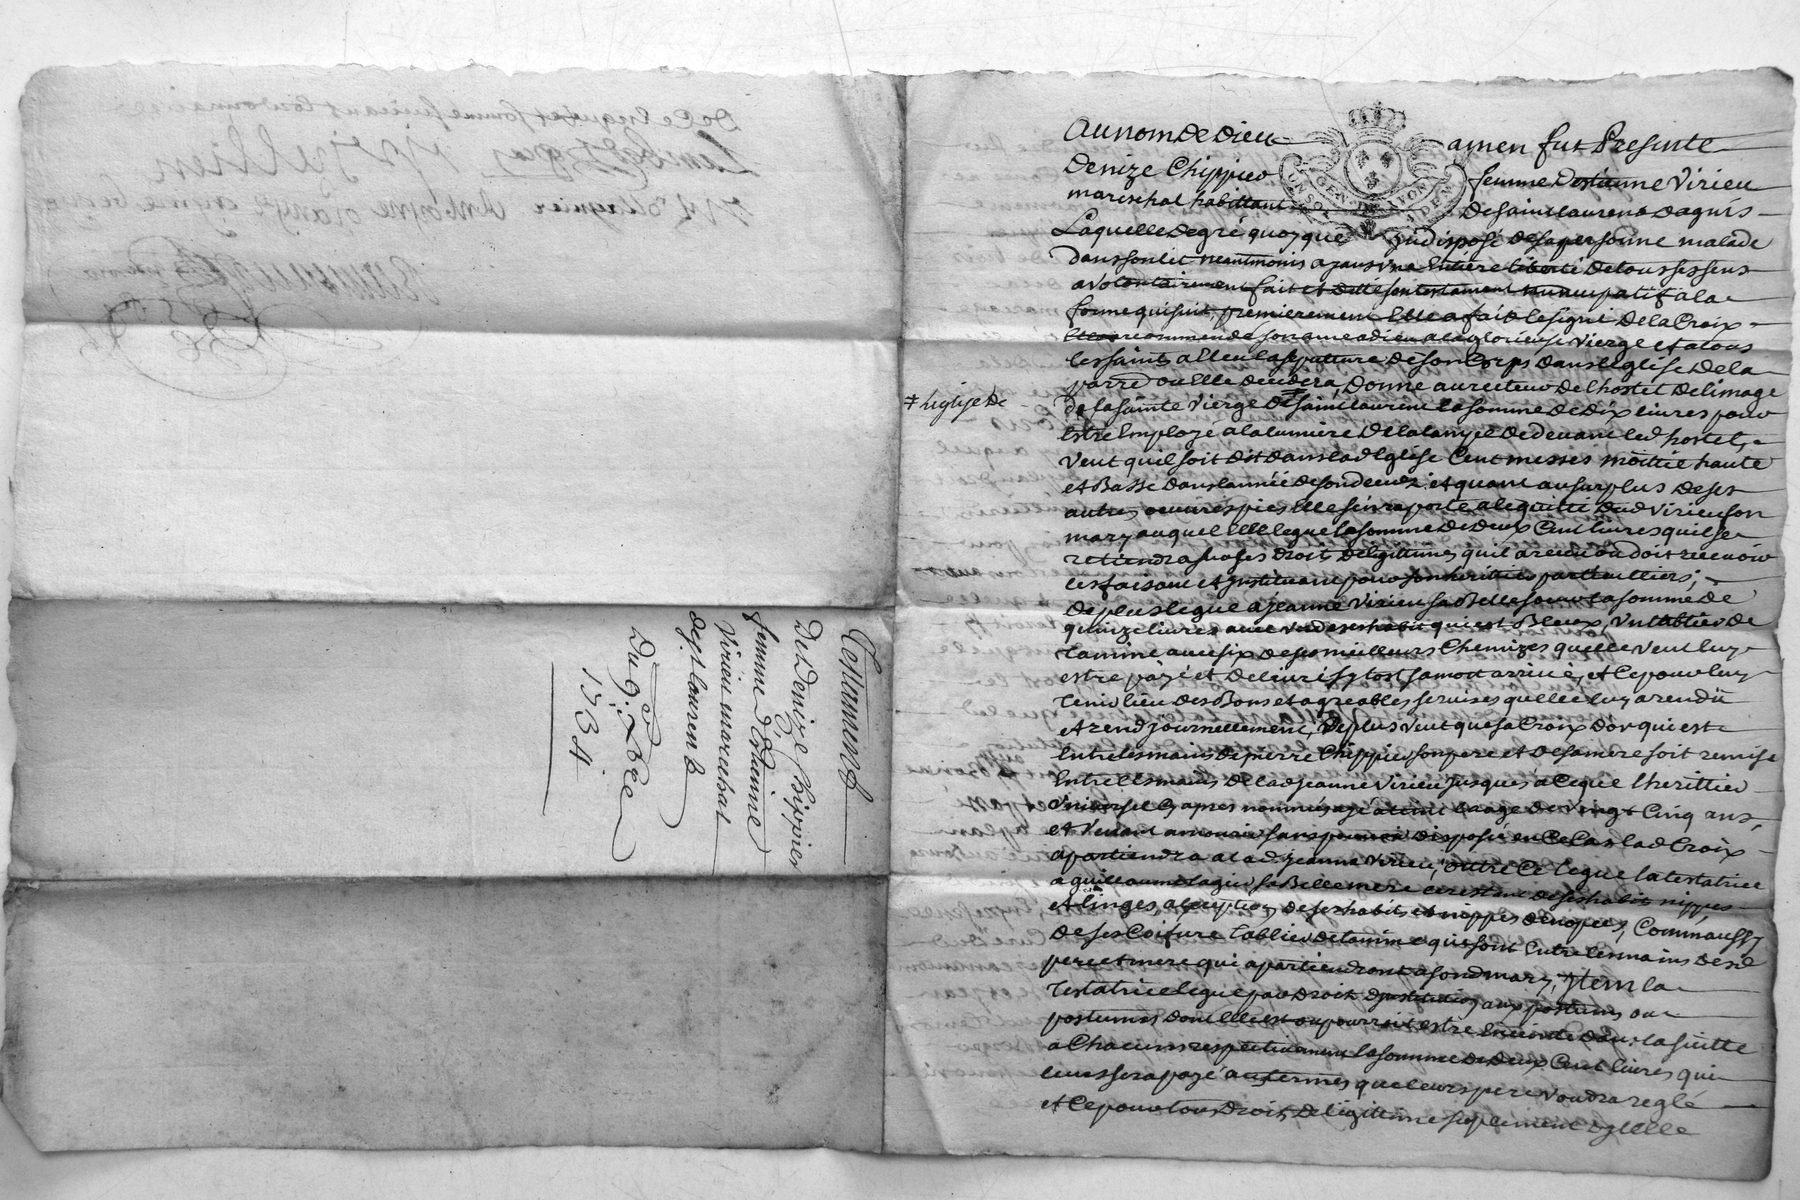 Au nom De Dieu amen fut Presente
Denize Chippier femme Destienne Virieu
mareschal habittant De saint laurens Dagnis
Laquelle De gré quoyque indisposé de sa personne malade
dans son lit neantmoins ayant une Entiere liberté de tous ses sens
a volontairement fait et ditte son testament nuncupatif a la
forme qui suit, premierement Elle a fait le signe De la Croix
recommende son ame a dieu a la glorieuse Vierge et a tous
les saints a Elleu la sepulture De son Corps Dans l'Eglise De la
parre ou Elle decedera, Donne au recteur De l'hostel De limage
‡ leglise De
de la sainte vierge De ‡ saint laurens la somme De Dix livres pour
Estre Employé a la lumiere De la lampe de devant led hostel,
Veut quil soit Dit Dans lad Eglise Cent messes moittié haute
et Basse Dans lannée de son deces, et quant au surplus De ses
autres oeuvres pies Elle sen raporte a lequitté Dud Virieu son
mary auquel Elle legue la somme De Deux Cent livres quil se
rettiendra sur ses Droits De legittime, quil a receu ou doit recevoir
les faisant et instituant pour son herittier particulliers;
De plus legue a jeanne Virieu sa Belle soeur la somme De
quinze livres avec un de ses habit qui est Bleux, un tablier de
Tamine avec six de ses meilleurs Chemizes quelle veut luy
estre payé et Delivré sy tost sa mort arrivé, et Ce pour luy
Tenir lieu Des Bons et agreables services quelle luy a rendü
et rend journellement, De plus veut que sa Croix Dor qui est
Entre les mains De pierre Chippier son pere et De sa mere soit remise
Entre les mains De lad jeanne Virieu jusques a Ce que lherittier
universel Cy apres nommé aye atteint laage De Vingt Cinq ans,
et Venant a mourir sans pouvoir Disposé en Ce Cas lad Croix
apartiendra a lad jeanne Virieu, outre Ce legue la testatrice
a guillaumet sa Belle mere le restant de ses habit nippes
et linges, a lexception de ses habits et nippes de nopces, Comme aussy
De ses Coifure tablier de tamine qui sont Entre les mains De sd
pere et mere qui apartiendront a son d mary, jtem la
Testatrice legue par Droit Dinstitution aux postumes ou
postumes dont Elle est ou pourroit estre Enceinte dans la suitte
a Chacuns respectivement la somme De Deux Cent livres qui
leurs sera payé aux termes que leurs pere voudra reglé
et Ce pour tous Droits De legittime suplement dycelle
Testament
De Denize Chippier
femme D Estienne
Virieu mareschal
De st laurens
Du 9e 7bre
1734